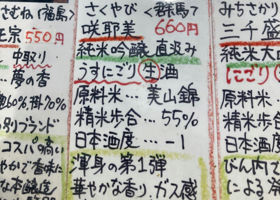 さむね〈福島〉
宗 550円
中取り
… 夢の香
60% 掛70%
ブランド
コスパ高い
やかで香味に
さくやび 〈群馬〉
咲耶美 660円
純米吟醸 直汲み
うすにごり 生 酒
原料米… 美山錦
精米歩合… 55%
日本酒度… -1
渾身の第1弾
華やかな香り、ガス感
みちさかり
三千盛
純米大
にごり
原料米
精米歩
日本酒
びん内
による